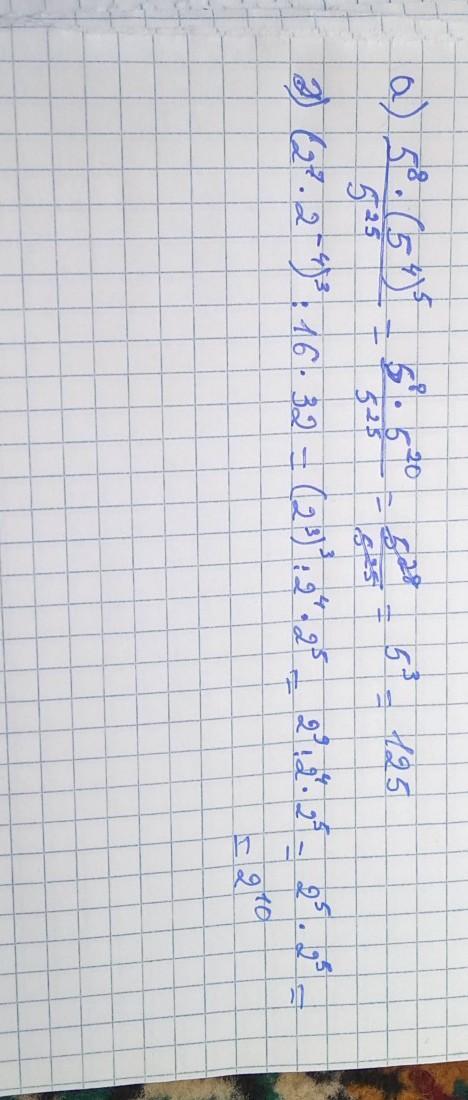 а) 5⁸ · (5⁴)⁵ / 5²⁵ = 5⁸ · 5²⁰ / 5²⁵ = 5²⁸ / 5²⁵ = 5³ = 125
г) (2⁷ · 2⁻⁴)³ : 16 · 32 = (2³)³ : 2⁴ · 2⁵ = 2⁹ : 2⁴ · 2⁵ = 2⁵ · 2⁵ =
= 2¹⁰